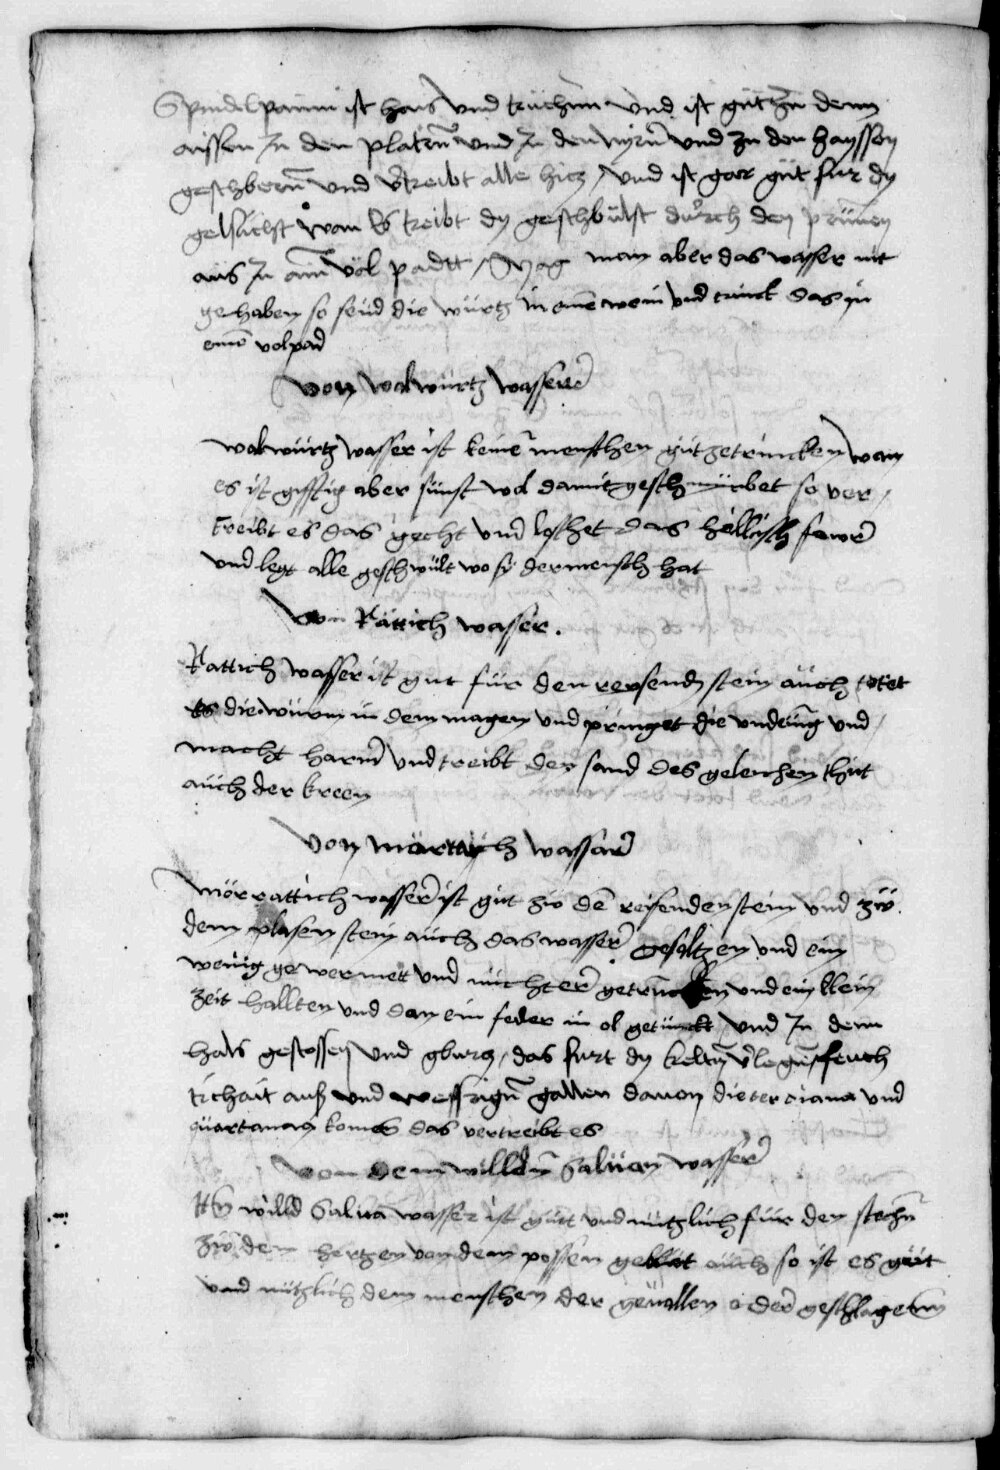 Spindelpaum ist hais und truckhen und ist gut zu denn
aissen zu den platern und zu den nyrn und zu den hayssen
geschbern und vertreibt alle hicz / und ist gar gut fur dy
gelsucht wan es treibt dy geschbulst durch den prunen
aus zu ainem vol padtt / Mag man aber das wasser nit
gehaben so seud die wurtz in eine wein und trinck das zu
eine volpad
Von wolwurtz wasser
wolwurtz wasser ist keine menschen gut getruncken wan
es ist gifftig aber sunst wol damit geschmirbet so ver /
treibt es das gicht und leschet das hellisch fewr
und legt alle geschwulst wo sy der mensch hat
Von Rattich wasser .
Rattich wasser ist gut fur den reysendn stein auch totet
es die wurm in dem magen und pringet die undeung und /
macht harnn und treibt den sand des geleichen thut
auch der kreen
Von morrattich wasser
Morrattich wasser ist gut zw de reisenden stein und zw
dem plasen stein auch das wasser gesaltzen und ein
wenig gewermett und nuchter getruncken und ein klein
zeit hallten und dan ein feder in ol getunckt und In denn
hals gestossen und gburg / das furt dy keltn feuch
tichait aus und wessrign gallen davon die terciana und
quartanan komen das vertreibt es
Von dem willdn Salven wasser
willd Salua wasser ist gutt und nutzlich fur den stechn
zw dem hertzen von dem possen geblut auch so ist es gutt
und nutzlich dem menschen der gevallen oder geschlagenn